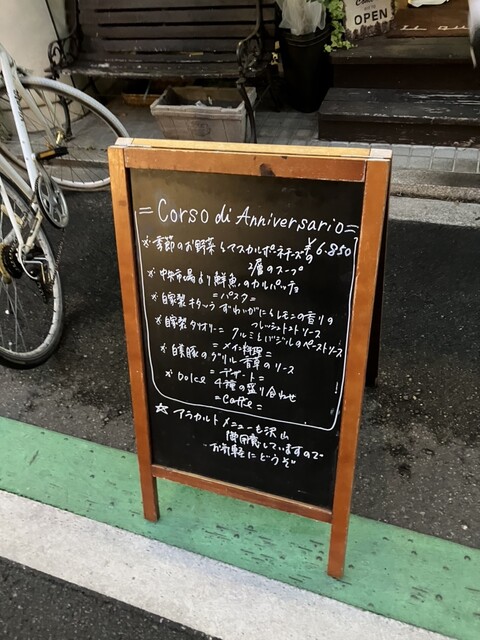 OPEN
=Corso di Anniversario=
¥6.850
※季節のお野菜とマスカルポーネチーズの
2層のスープ
※中央市場より鮮魚のカルパッチョ
=パスタ=
※自家製キタッラ ずわいがにとレモンの香りの
フレッシュトマトソース
※自家製タヤリン クルミとバジルのペーストソース
=メイン料理=
※白美豚のグリル 香草のソース
=デザート=
※Dolce 4種の盛り合わせ
=Caffe=
☆アラカルトメニューも沢山
御用意していますので
お気軽にどうぞ